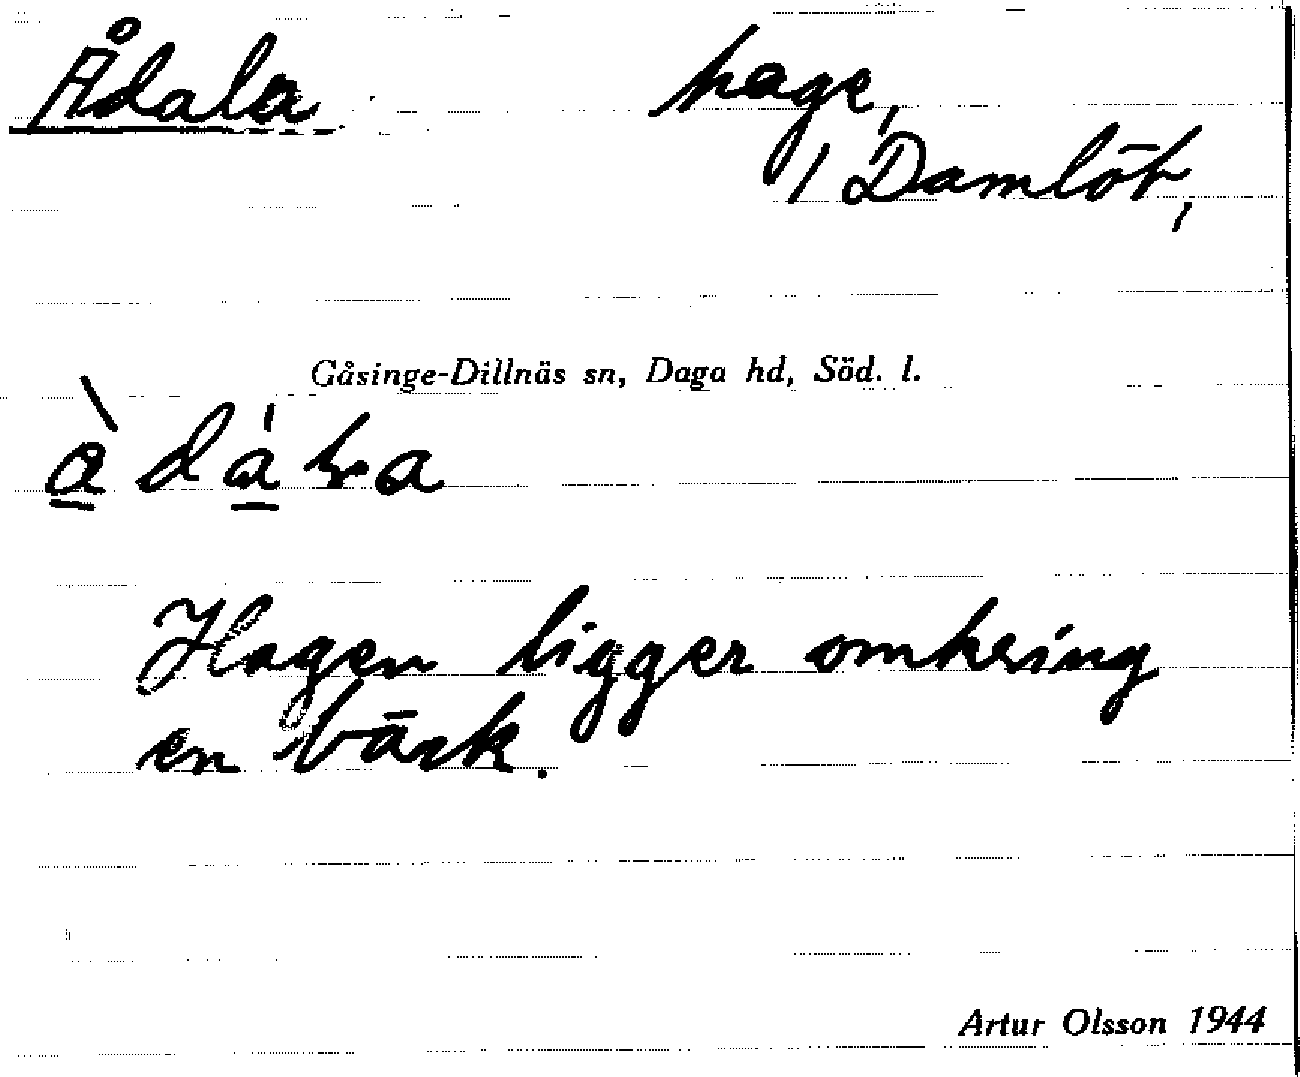 Ådala hage,
1 Damlöt,
Gåsinge-Dillnäs sn, Daga hd, Söd. l.
Hagen ligger omkring
en bäck.
Artur Olsson 1944